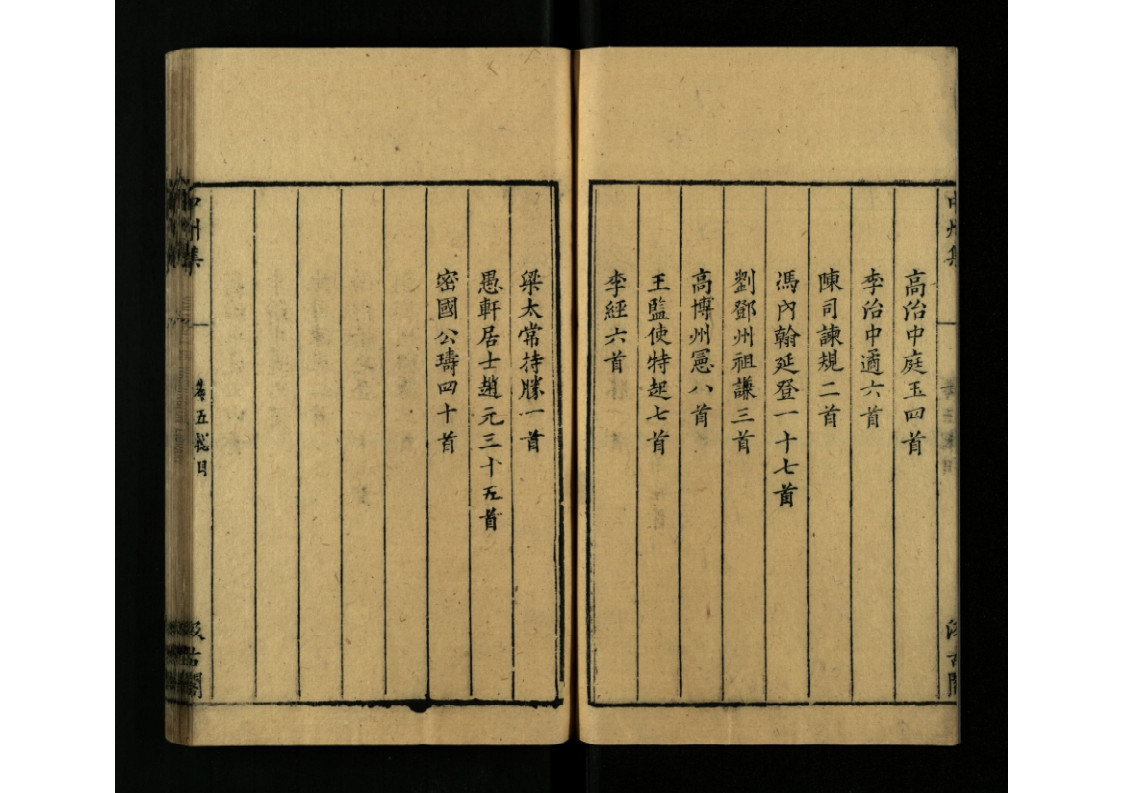 中州集
汲古閣
高治中庭玉四首
李治中遹六首
陳司諫規二首
馮內翰延登一十七首
劉鄧州祖謙三首
高博州憲八首
王監使特起七首
李經六首
梁太常持勝一首
愚軒居士趙元三十五首
密國公璹四十首
中州集
卷五総目
汲古閣